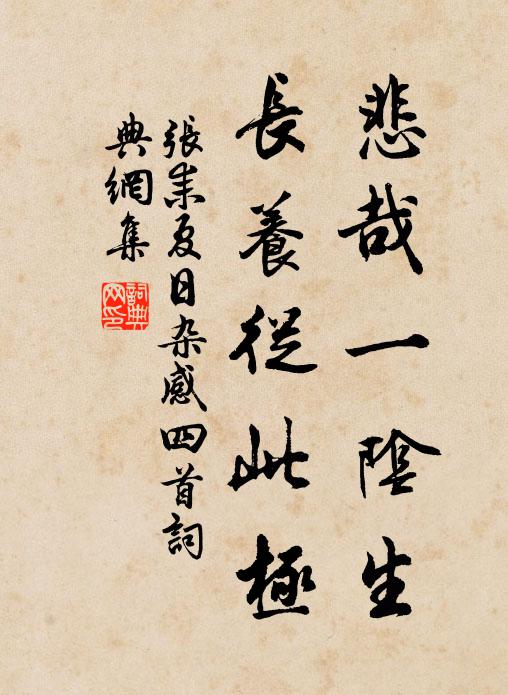 悲哉一陰生
長養從此極
張耒夏日杂感四首詞
典網集
詞典
网印